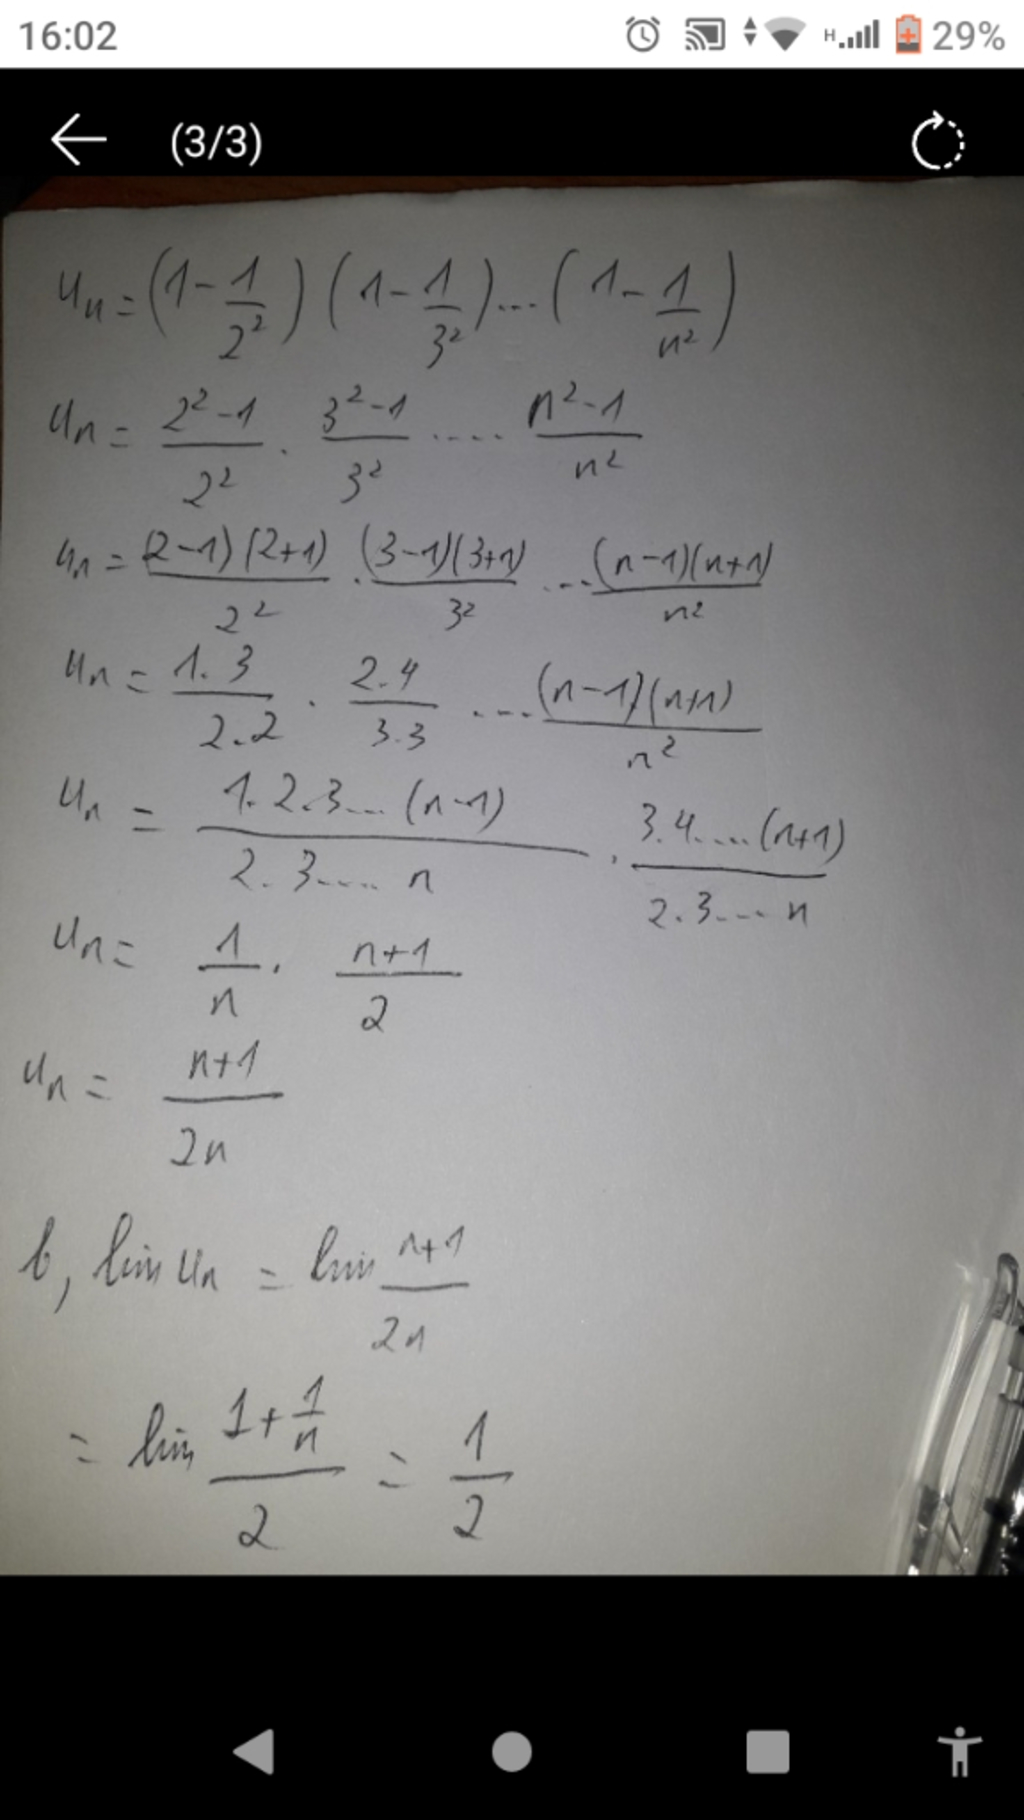 16:02 H 29%
(3/3)
uₙ = (1 - 1/2²) (1 - 1/3²) ... (1 - 1/n²)
uₙ = (2² - 1)/2² . (3² - 1)/3² .... (n² - 1)/n²
uₙ = (2-1)(2+1)/2² . (3-1)(3+1)/3² ... (n-1)(n+1)/n²
uₙ = 1.3/2.2 . 2.4/3.3 ... (n-1)(n+1)/n²
uₙ = 1.2.3...(n-1)/2.3....n . 3.4....(n+1)/2.3...n
uₙ = 1/n . (n+1)/2
uₙ = (n+1)/2n
b, lim uₙ = lim (n+1)/2n
= lim (1 + 1/n)/2 = 1/2